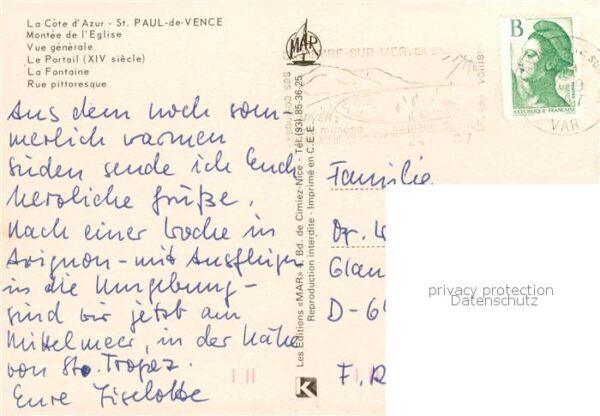 La Côte d'Azur - St. PAUL-de-VENCE
Montée de l'Eglise
Vue générale
Le Portail (XIV siècle)
La Fontaine
Rue pittoresque
Aus dem noch som-
merlich warmen
Süden sende ich Euch
herzliche Grüße.
Nach einer Woche in
Avignon - mit Ausflügen
in die Umgebung -
sind wir jetzt am
Mittelmeer, in der Nähe
von St. Tropez.
Eure Liselotte
MAR
Les Editions «MAR» 1, Bd. de Cimiez-Nice - Tél. (93) 85-36-25
Reproduction interdite - Imprimé en C.E.E.
SUR-MER
HIVER
mimosa
B
REPUBLIQUE FRANÇAISE
VAR
Familie
Dr.
D-6
F.
K
privacy protection
Datenschutz